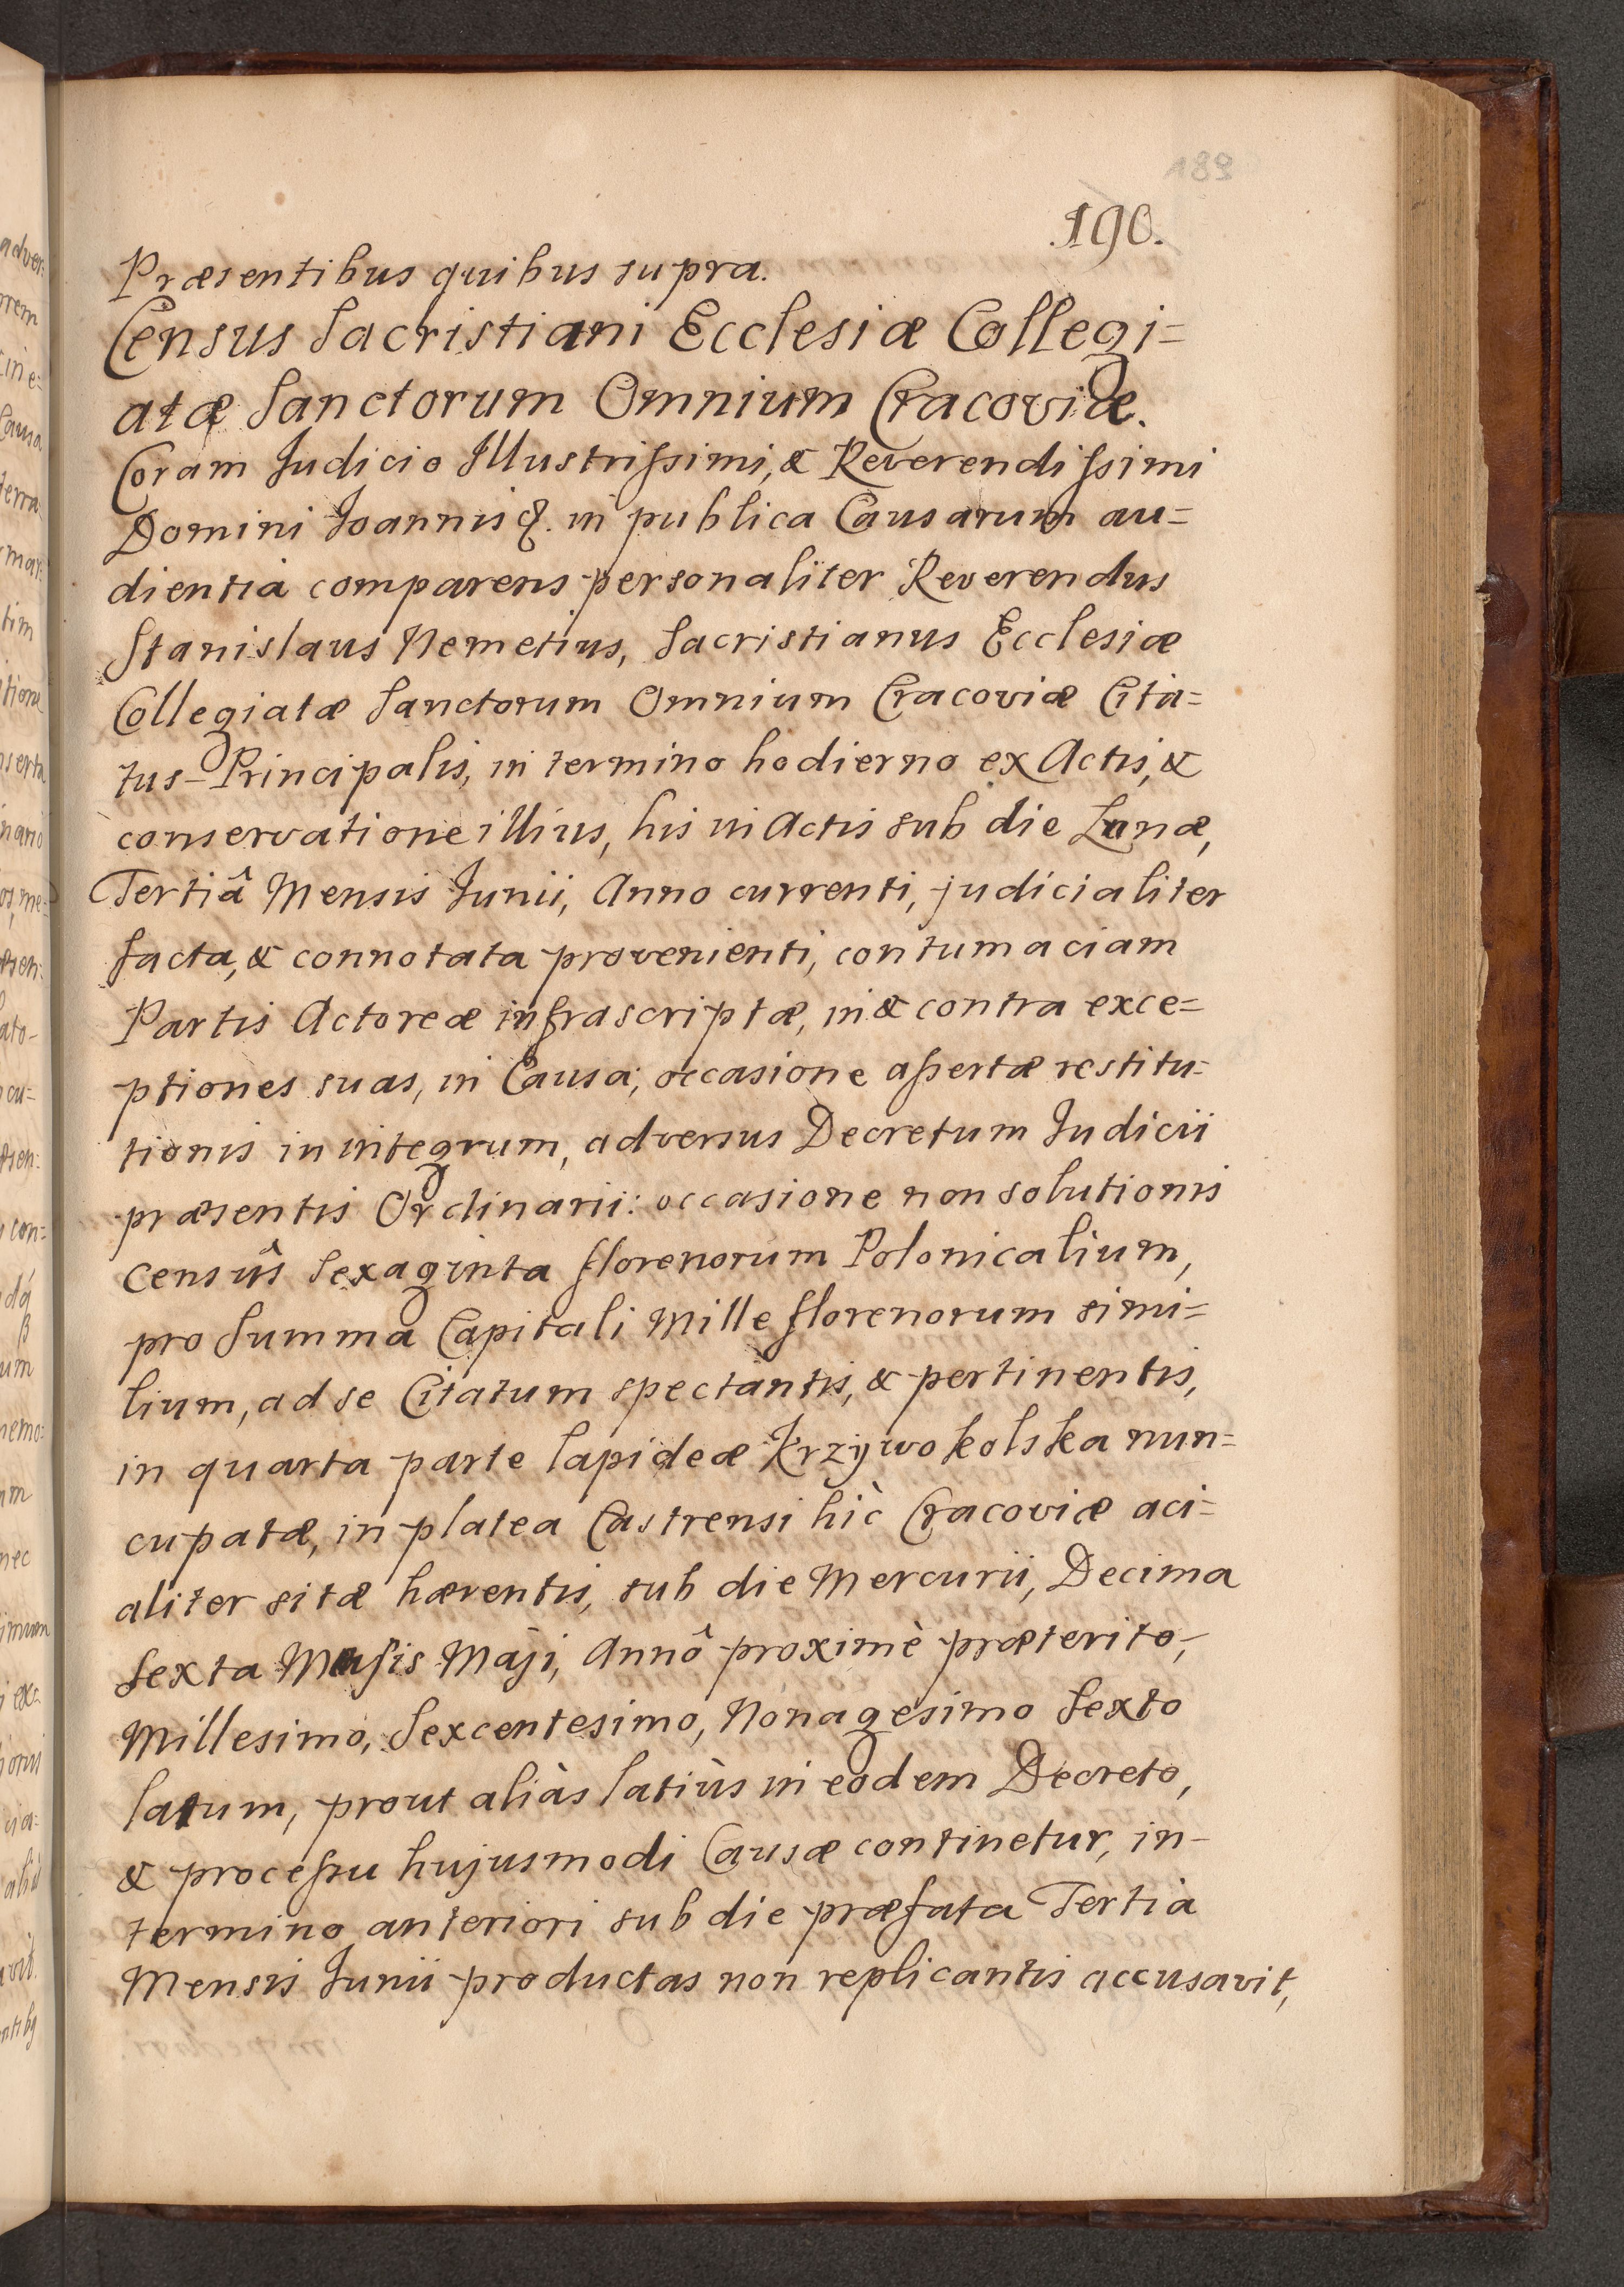 .190.
Præsentibus quibus supra.
Census Sacristiani Ecclesiæ Collegi=
atæ Sanctorum Omnium Cracoviæ.
Coram Judicio Illustrissimi, & Reverendissimi
Domini Joannis &. in publica Causarum au=
dientia comparens personaliter Reverendus
Stanislaus Nemetius, Sacristianus Ecclesiæ
Collegiatæ Sanctorum Omnium Cracoviæ Cita=
tus-Principalis, in termino hodierno ex Actis, &
conservatione illius, his in Actis sub die Lunæ,
Tertiâ Mensis Junii, Anno currenti, judicialiter
facta, & connotata provenienti, contumaciam
Partis Actoreæ infrascriptæ, in & contra exce=
ptiones suas, in Causa, occasione assertæ restitu=
tionis in integrum, adversus Decretum Judicii
præsentis Ordinarii: occasione non solutionis
censûs Sexaginta florenorum Polonicalium,
pro Summa Capitali Mille florenorum simi=
lium, ad se Citatum spectantis, & pertinentis,
in quarta parte lapideæ Krzywokolska nun=
cupatæ, in platea Castrensi hìc Cracoviæ aci=
aliter sitæ hærentis, sub die Mercurii, Decima
Sexta Mensis Maji, Annô proximè præterito,
Millesimo, Sexcentesimo, Nonagesimo Sexto
latum, prout aliàs latiùs in eodem Decreto,
& processu hujusmodi Causæ continetur, in-
termino anteriori sub die præfata Tertia
Mensis Junii productas non replicantis accusavit,